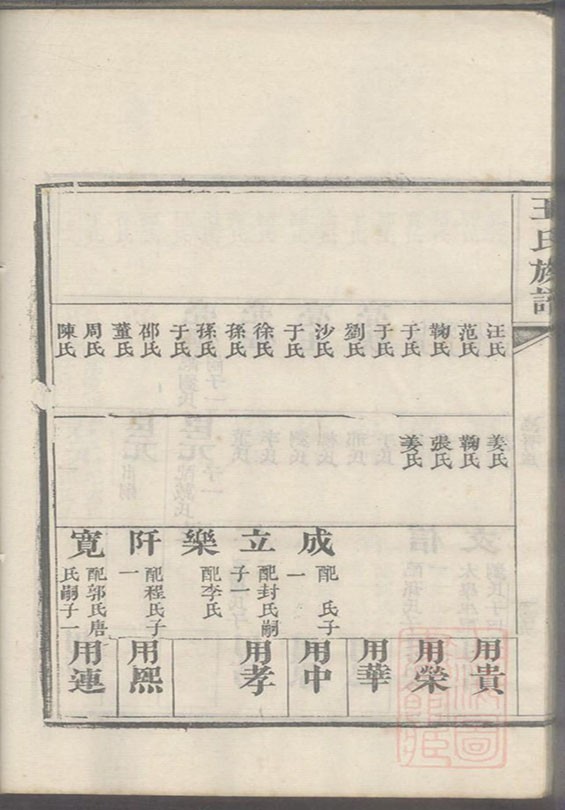 王氏族譜
汪氏
范氏
鞠氏
于氏
于氏
劉氏
沙氏
于氏
徐氏
孫氏
孫氏
于氏
邵氏
董氏
周氏
陳氏
姜氏
鞠氏
張氏
姜氏
成
配 氏子
一
立
配封氏嗣
子一
樂
配李氏
阡
配程氏子
一
寬
配郭氏唐
氏嗣子一
用貴
用榮
用華
用中
用孝
用熙
用連